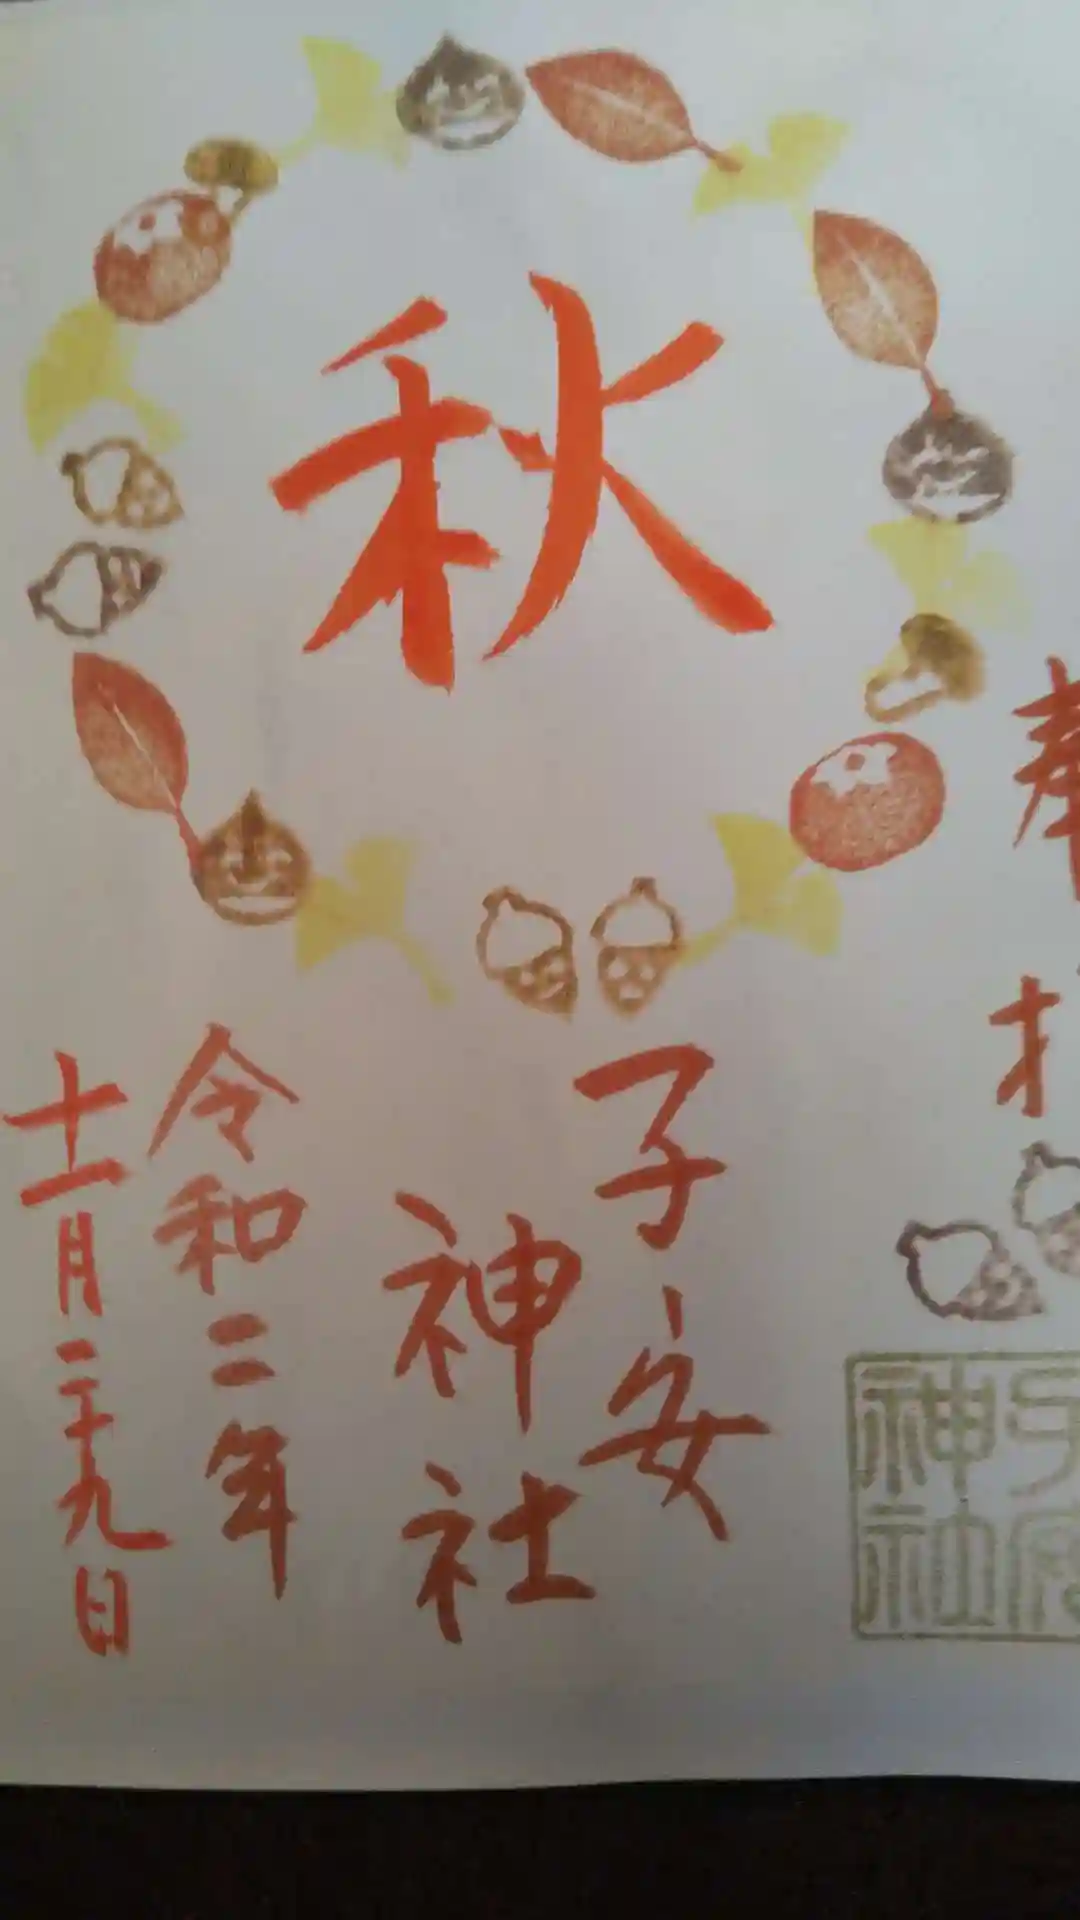 秋
奉
子安
神社
令和二年
十一月二十九日
神社